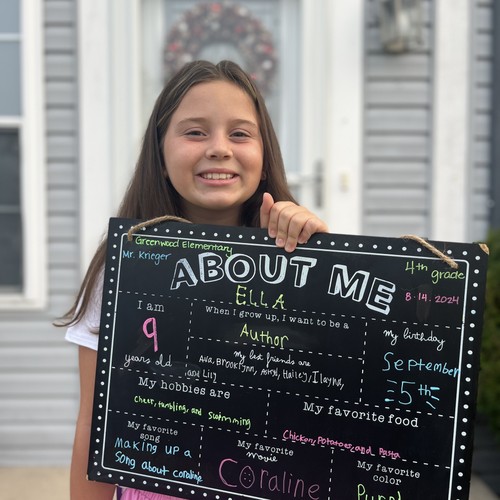 Greenwood Elementary
Mr. Krieger
ABOUT ME
4th grade
8.14.2024
ELLA
I am
9
years old
When I grow up, I want to be a
Author
My best friends are
Ava, Brooklynn, Ariel, Hailey, Ilayna,
and Lily
My birthday
September
5th
My hobbies are
Cheer, tumbling, and swimming
My favorite food
Chicken, Potatoes, and Pasta
My favorite
song
Making up a
song about coraline
My favorite
movie
Coraline
My favorite
color